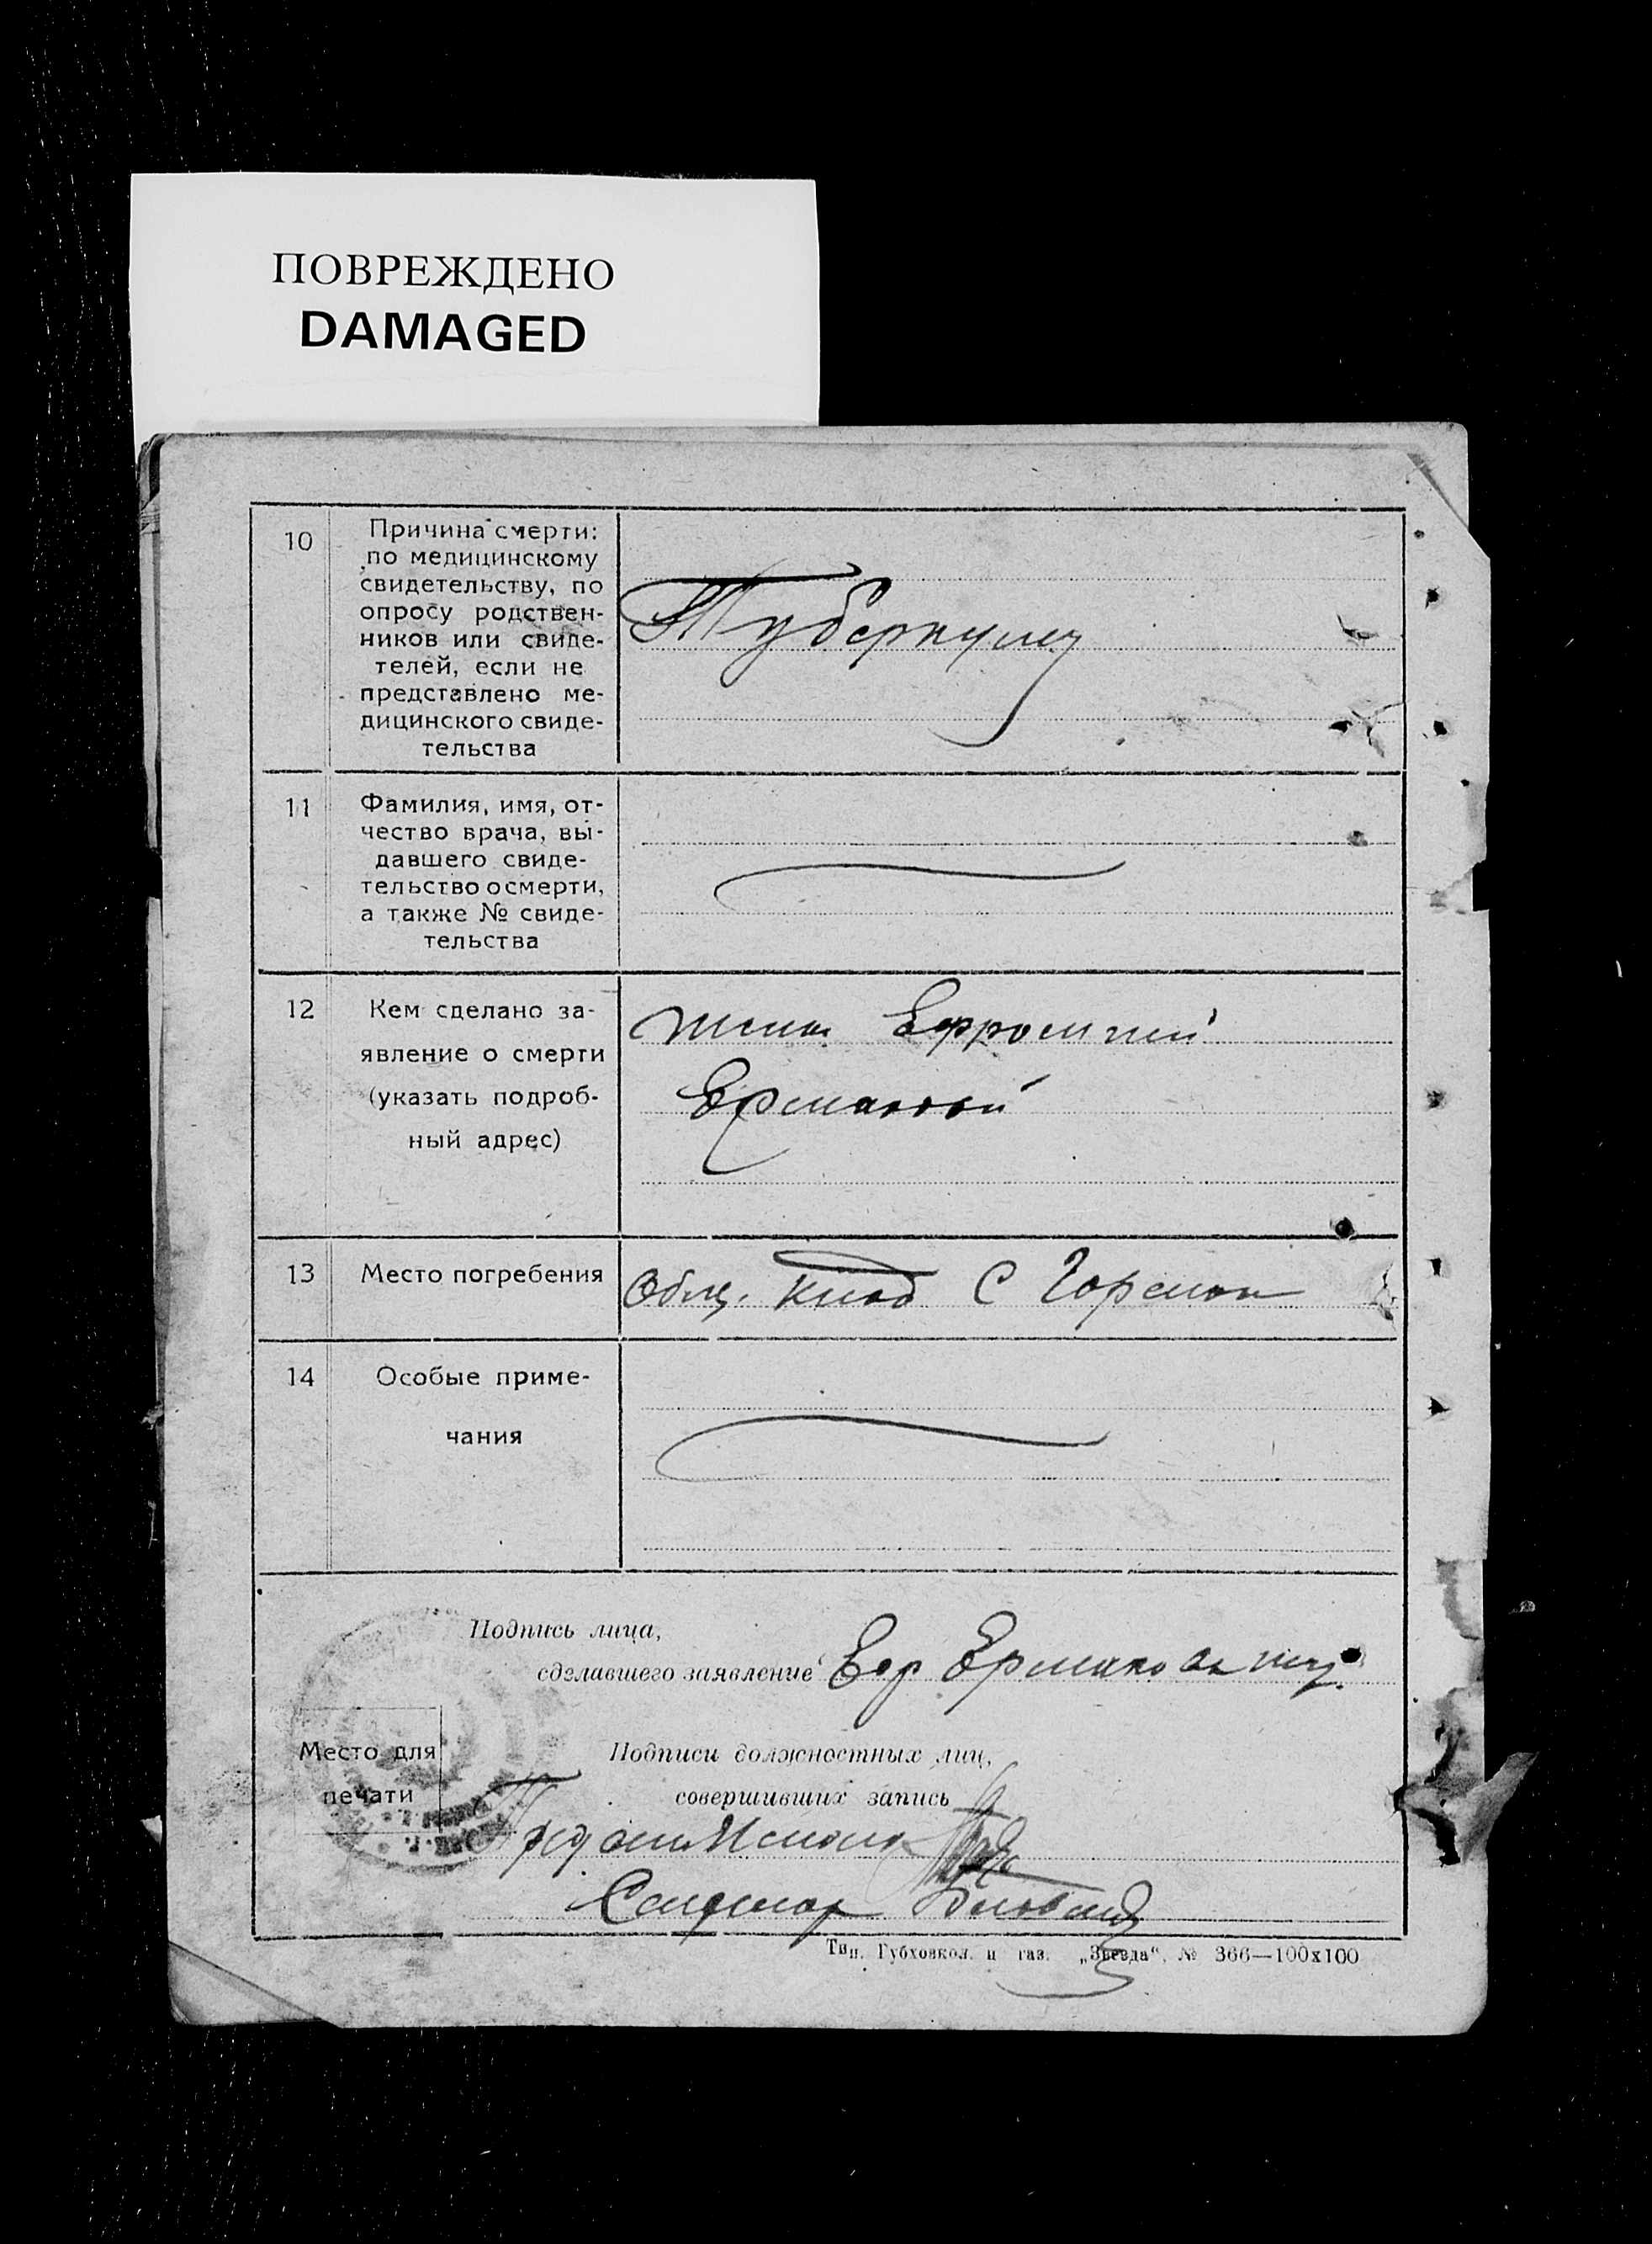 ПОВРЕЖДЕНО
DAMAGED
10
Причина смерти:
по медицинскому
свидетельству, по
опросу родствен-
ников или свиде-
телей, если не
представлено ме-
дицинского свиде-
тельства
Туберкулез
11
Фамилия, имя, от-
чество врача, вы-
давшего свиде-
тельство о смерти,
а также № свиде-
тельства
12
Кем сделано за-
явление о смерти
(указать подроб-
ный адрес)
женой Ефросинией
Ермаковой
13
Место погребения
Общ. клад С
14
Особые приме-
чания
Подпись лица,
сделавшего заявление
Еф Ермакова
Место для
печати
Подписи должностных лиц,
совершивших запись
Тип. Губховкол. и газ. „Звезда“, № 366—100х100